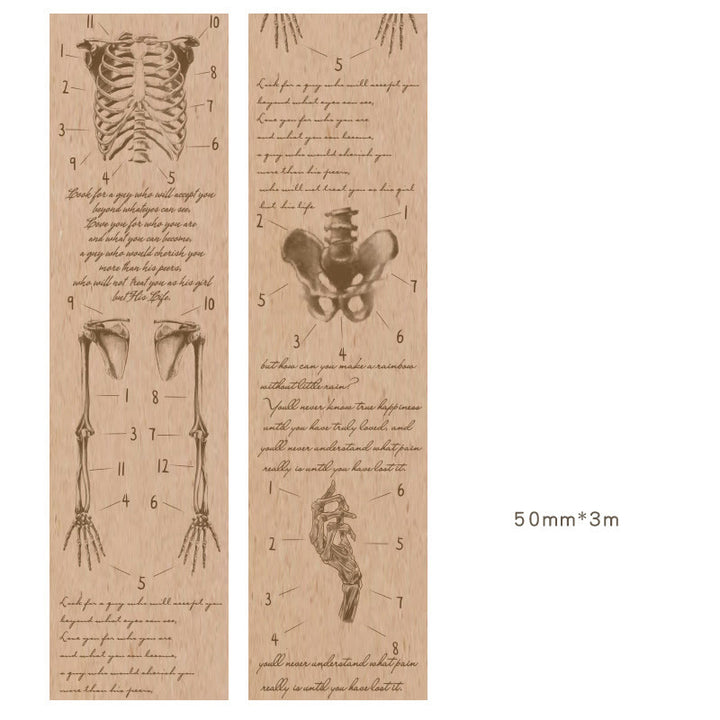 11
10
1
8
2
7
3
6
9
4
5
Look for a guy who will accept you
beyond whateyes can see,
Love you for who you are
and what you can become,
a guy who would cherish you
more than his peers,
who will not treat you as his girl
but His Life.
9
10
1
8
3
7
11
12
4
6
5
Look for a guy who will accept you
beyond what eyes can see,
Love you for who you are
and what you can become,
a guy who would cherish you
more than his peers,
5
Look for a guy who will accept you
beyond what eyes can see,
Love you for who you are
and what you can become,
a guy who would cherish you
more than his peers,
who will not treat you as his girl
but his life
2
1
5
7
3
4
6
but how can you make a rainbow
without little rain?
You'll never know true happiness
until you have truly loved, and
you'll never understand what pain
really is until you have lost it.
1
6
2
5
3
7
4
8
you'll never understand what pain
really is until you have lost it.
50mm*3m